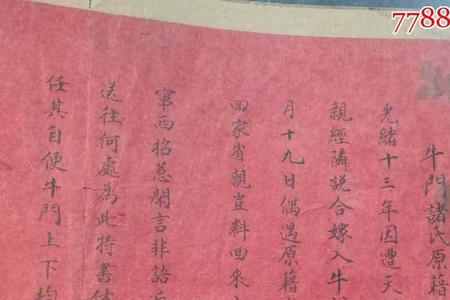 7788
牛門諸氏原籍
光緒十三年因遭天
親經隣説合嫁入牛
月十九日偶遇原藉
回家省親豈料回來
窜西招惹閑言非語
送往何處為此特書
任其自便牛門上下均